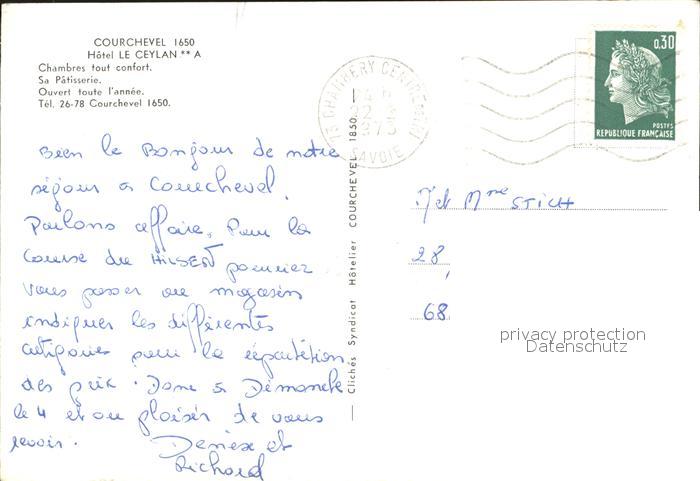 COURCHEVEL 1650
Hôtel LE CEYLAN ** A
Chambres tout confort.
Sa Pâtisserie.
Ouvert toute l'année.
Tél. 26-78 Courchevel 1650.
Bien le Bonjour de notre
séjour à Courchevel.
Parlons affaire. Pour la
course du HILSEN pourriez
vous passer au magasin
indiquer les différentes
catégories pour la répartition
des prix. Donc à Dimanche
le 4 et au plaisir de vous
revoir.
Denise et
Richard
— Clichés Syndicat Hôtelier COURCHEVEL 1850 —
73 CHAMBERY
SAVOIE
1973
0,30
POSTES
REPUBLIQUE FRANÇAISE
M et Mme STICH
28,
68
privacy protection
Datenschutz